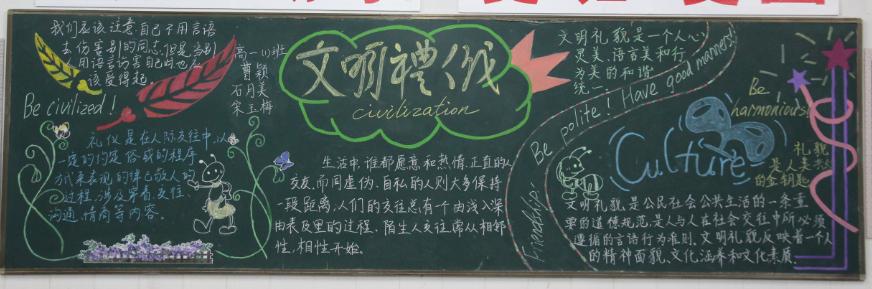 我们应该注意,自己不用言语
去伤害别的同志,但是当别
用语言伤害自己时也应
该受得起.
Be civilized!
高一(1)班
曹颖
石月美
宋玉梅
礼仪是在人际交往中,以
一定的约定俗成的程序
方式来表现的律己敬人的
过程,涉及穿着.交往.
沟通.情商等内容.
文明禮仪
civilization
生活中,谁都愿意和热情.正直的人
交友,而同虚伪.自私的人则大多保持
一段距离,人们的交往总有个由浅入深
由表及里的过程.陌生人交往常从相邻
性,相性开始.
文明礼貌是一个人心
灵美.语言美和行
为美的和谐
统一.
Friendship: Be polite! Have good manners!
Be
harmonious!
Culture
礼貌
是人类共处
的金钥匙
文明礼貌,是公民社会公共生活的一条重
要的道德规范,是人与人在社会交往中所必须
遵循的言语行为准则.文明礼貌反映着一个人
的精神面貌.文化涵养和文化素质.